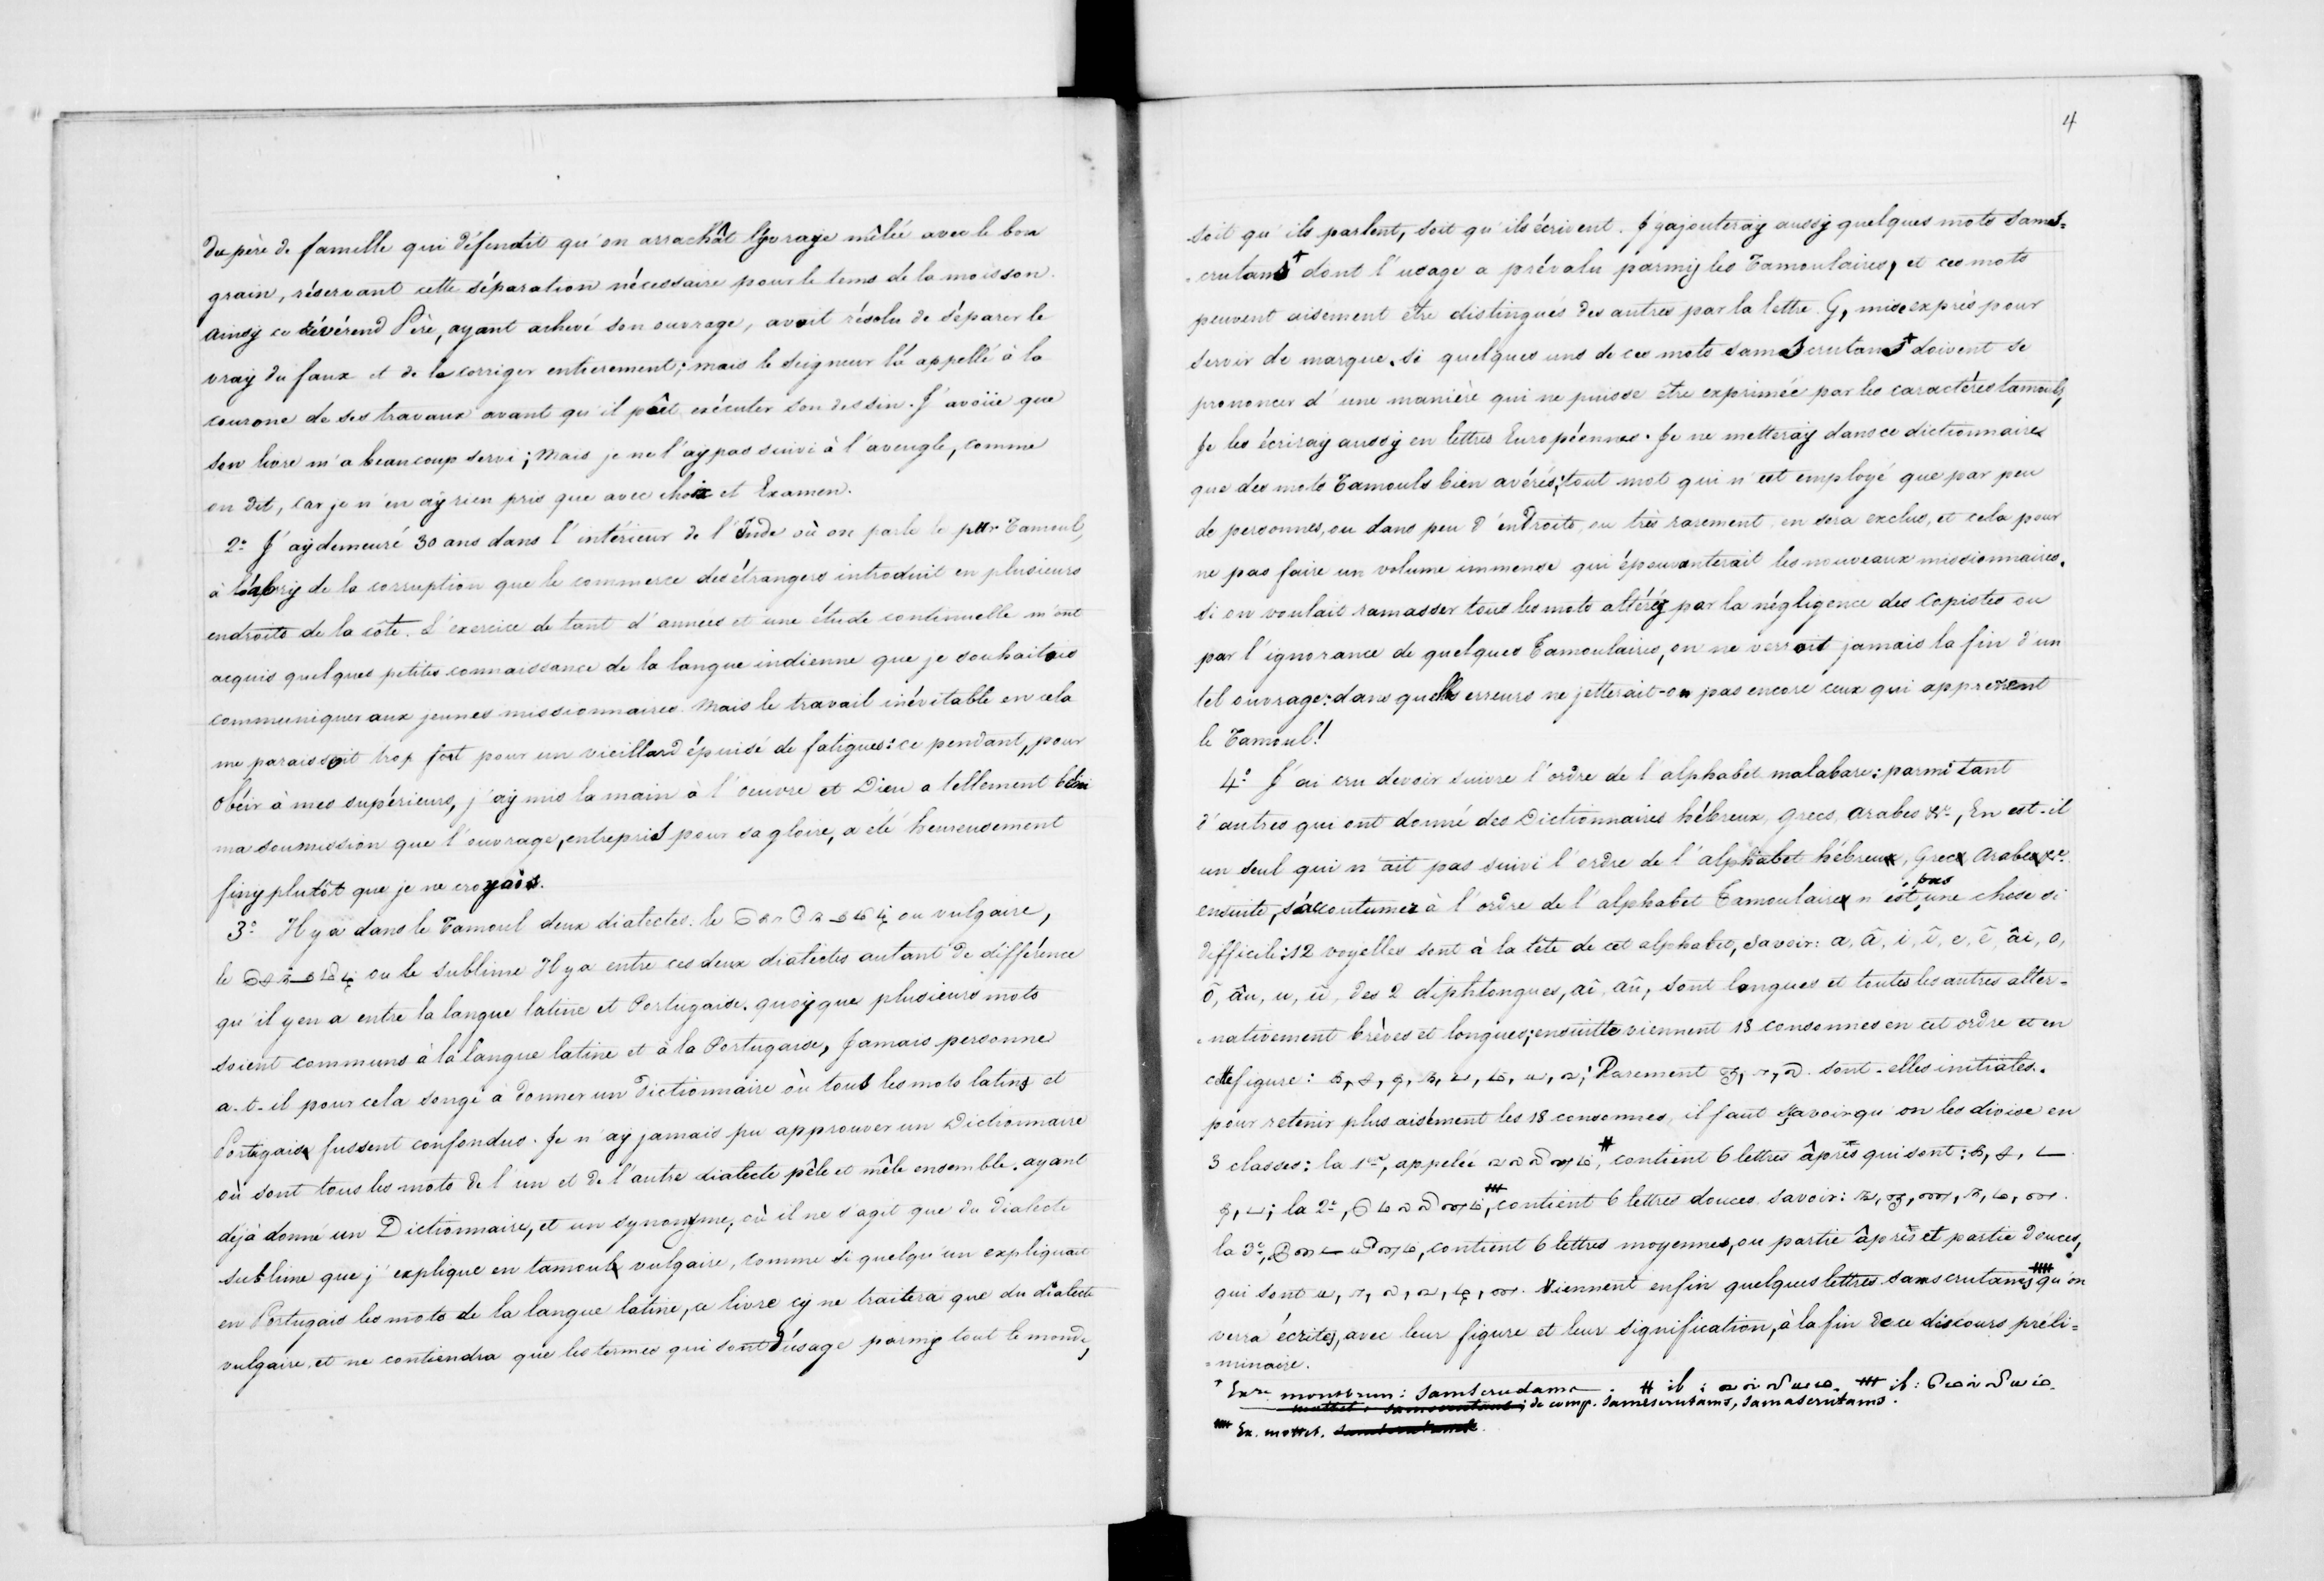 du père de famille qui défendit qu'on arrachât l'yvraye mêlée avec le bon
grain, réservant cette séparation nécessaire pour le tems de la moisson.
Ainsy ce révérend Père, ayant achevé son ouvrage, avoit résolu de séparer le
vray du faux et de le corriger entierement; mais le Seigneur l'a appellé à la
courone de ses travaux avant qu'il pût exécuter son dessin. J'avoüe que
son livre m'a beaucoup servi; Mais je ne l'ay pas suivi à l'aveugle, comme
on dit, car je n'en aÿ rien pris que avec choix et Examen.
2º J'aÿ demeuré 30 ans dans l'intérieur de l'Inde où on parle le pur Tamoul,
à l'abry de la corruption que le commerce des étrangers introduit en plusieurs
endroits de la côte. L'exercice de tant d'années et une étude continuelle m'ont
acquis quelques petites connaissance de la langue indienne que je souhaitois
communiquer aux jeunes missionnaires. Mais le travail inévitable en cela
me paraissoit trop fort pour un vieillard épuisé de fatigues: ce pendant, pour
obéir à mes supérieurs, j'aÿ mis la main à l'œuvre et Dieu a tellement béni
ma soumission que l'ouvrage, entrepris pour sa gloire, a été heureusement
finy plutôt que je ne croyois.
3º Il y a dans le Tamoul deux dialectes. le ou vulgaire,
le ou le sublime Il y a entre ces deux dialectes autant de différence
qu'il y en a entre la langue latine et Portugaise. quoÿ que plusieurs mots
soient communs à la langue latine et à la Portugaise, Jamais personne
a-t-il pour cela songé à donner un Dictionnaire où tous les mots latins et
Portugais fussent confondus. Je n'aÿ jamais pu approuver un Dictionnaire
où sont tous les mots de l'un et de l'autre dialecte pêle et mêle ensemble. ayant
déjà donné un Dictionnaire, et un synonyme, où il ne s'agit que du dialecte
sublime que j'explique en tamoul vulgaire, comme si quelqu'un expliquait
en Portugais les mots de la langue latine, ce livre cy ne traitera que du dialecte
vulgaire, et ne contiendra que les termes qui sont d'usage parmy tout le monde,
4
soit qu'ils parlent, soit qu'ils écrivent. J'y ajouteraÿ aussÿ quelques mots sams=
=crutams† dont l'usage a prévalu parmÿ les Tamoulaires, et ces mots
peuvent aisement être distingués des autres par la lettre G, mise exprès pour
servir de marque. Si quelques uns de ces mots samscrutams† doivent se
prononcer d'une manière qui ne puisse être exprimée par les caractères tamouls,
Je les écriraÿ aussÿ en lettres Européennes. Je ne metteraÿ dans ce dictionnaire
que des mots Tamouls bien avérés; tout mot qui n'est employé que par peu
de personnes, ou dans peu d'endroits, ou très rarement, en sera exclus, et cela pour
ne pas faire un volume immense qui épouvanterait les nouveaux missionnaires.
Si on voulait ramasser tous les mots altéréz par la négligence des Copistes ou
par l'ignorance de quelques Tamoulaires, on ne verroit jamais la fin d'un
tel ouvrage: dans quelles erreurs ne jetterait-on pas encore ceux qui apprenent
le Tamoul!
4º J'ai cru devoir suivre l'ordre de l'alphabet malabare: parmi tant
d'autres qui ont donné des Dictionnaires hébreux, Grecs, Arabes &c, En est-il
un seul qui n'ait pas suivi l'ordre de l'alphabet hébreu, Grec, Arabe &c.
ensuite, s'accoutumer à l'ordre de l'alphabet Tamoulaire n'est pas une chose si
difficile: 12 voyelles sont à la tête de cet alphabet, Savoir: a, â, i, î, e, ê, âi, o,
ô, âu, u, û, des 2 diphtongues, aî, aû, sont longues et toutes les autres alter-
-nativement brèves et longues; ensuitte viennent 18 consonnes en cet ordre et en
cette figure: Rarement sont-elles initiales.
pour retenir plus aisément les 18 consonnes, il faut savoir qu'on les divise en
3 classes: la 1ère, appelée # contient 6 lettres âpres qui sont:
la 2e, contient 6 lettres douces. Savoir:
la 3e, contient 6 lettres moyennes, ou partie âpres et partie douces,
qui sont Viennent enfin quelques lettres samscrutams qu'on
verra écrites, avec leur figure et leur signification, à la fin de ce discours préli=
=minaire.
samscrudams
de comp. Samescrutams, Samascrutams.
Ex. mottet.